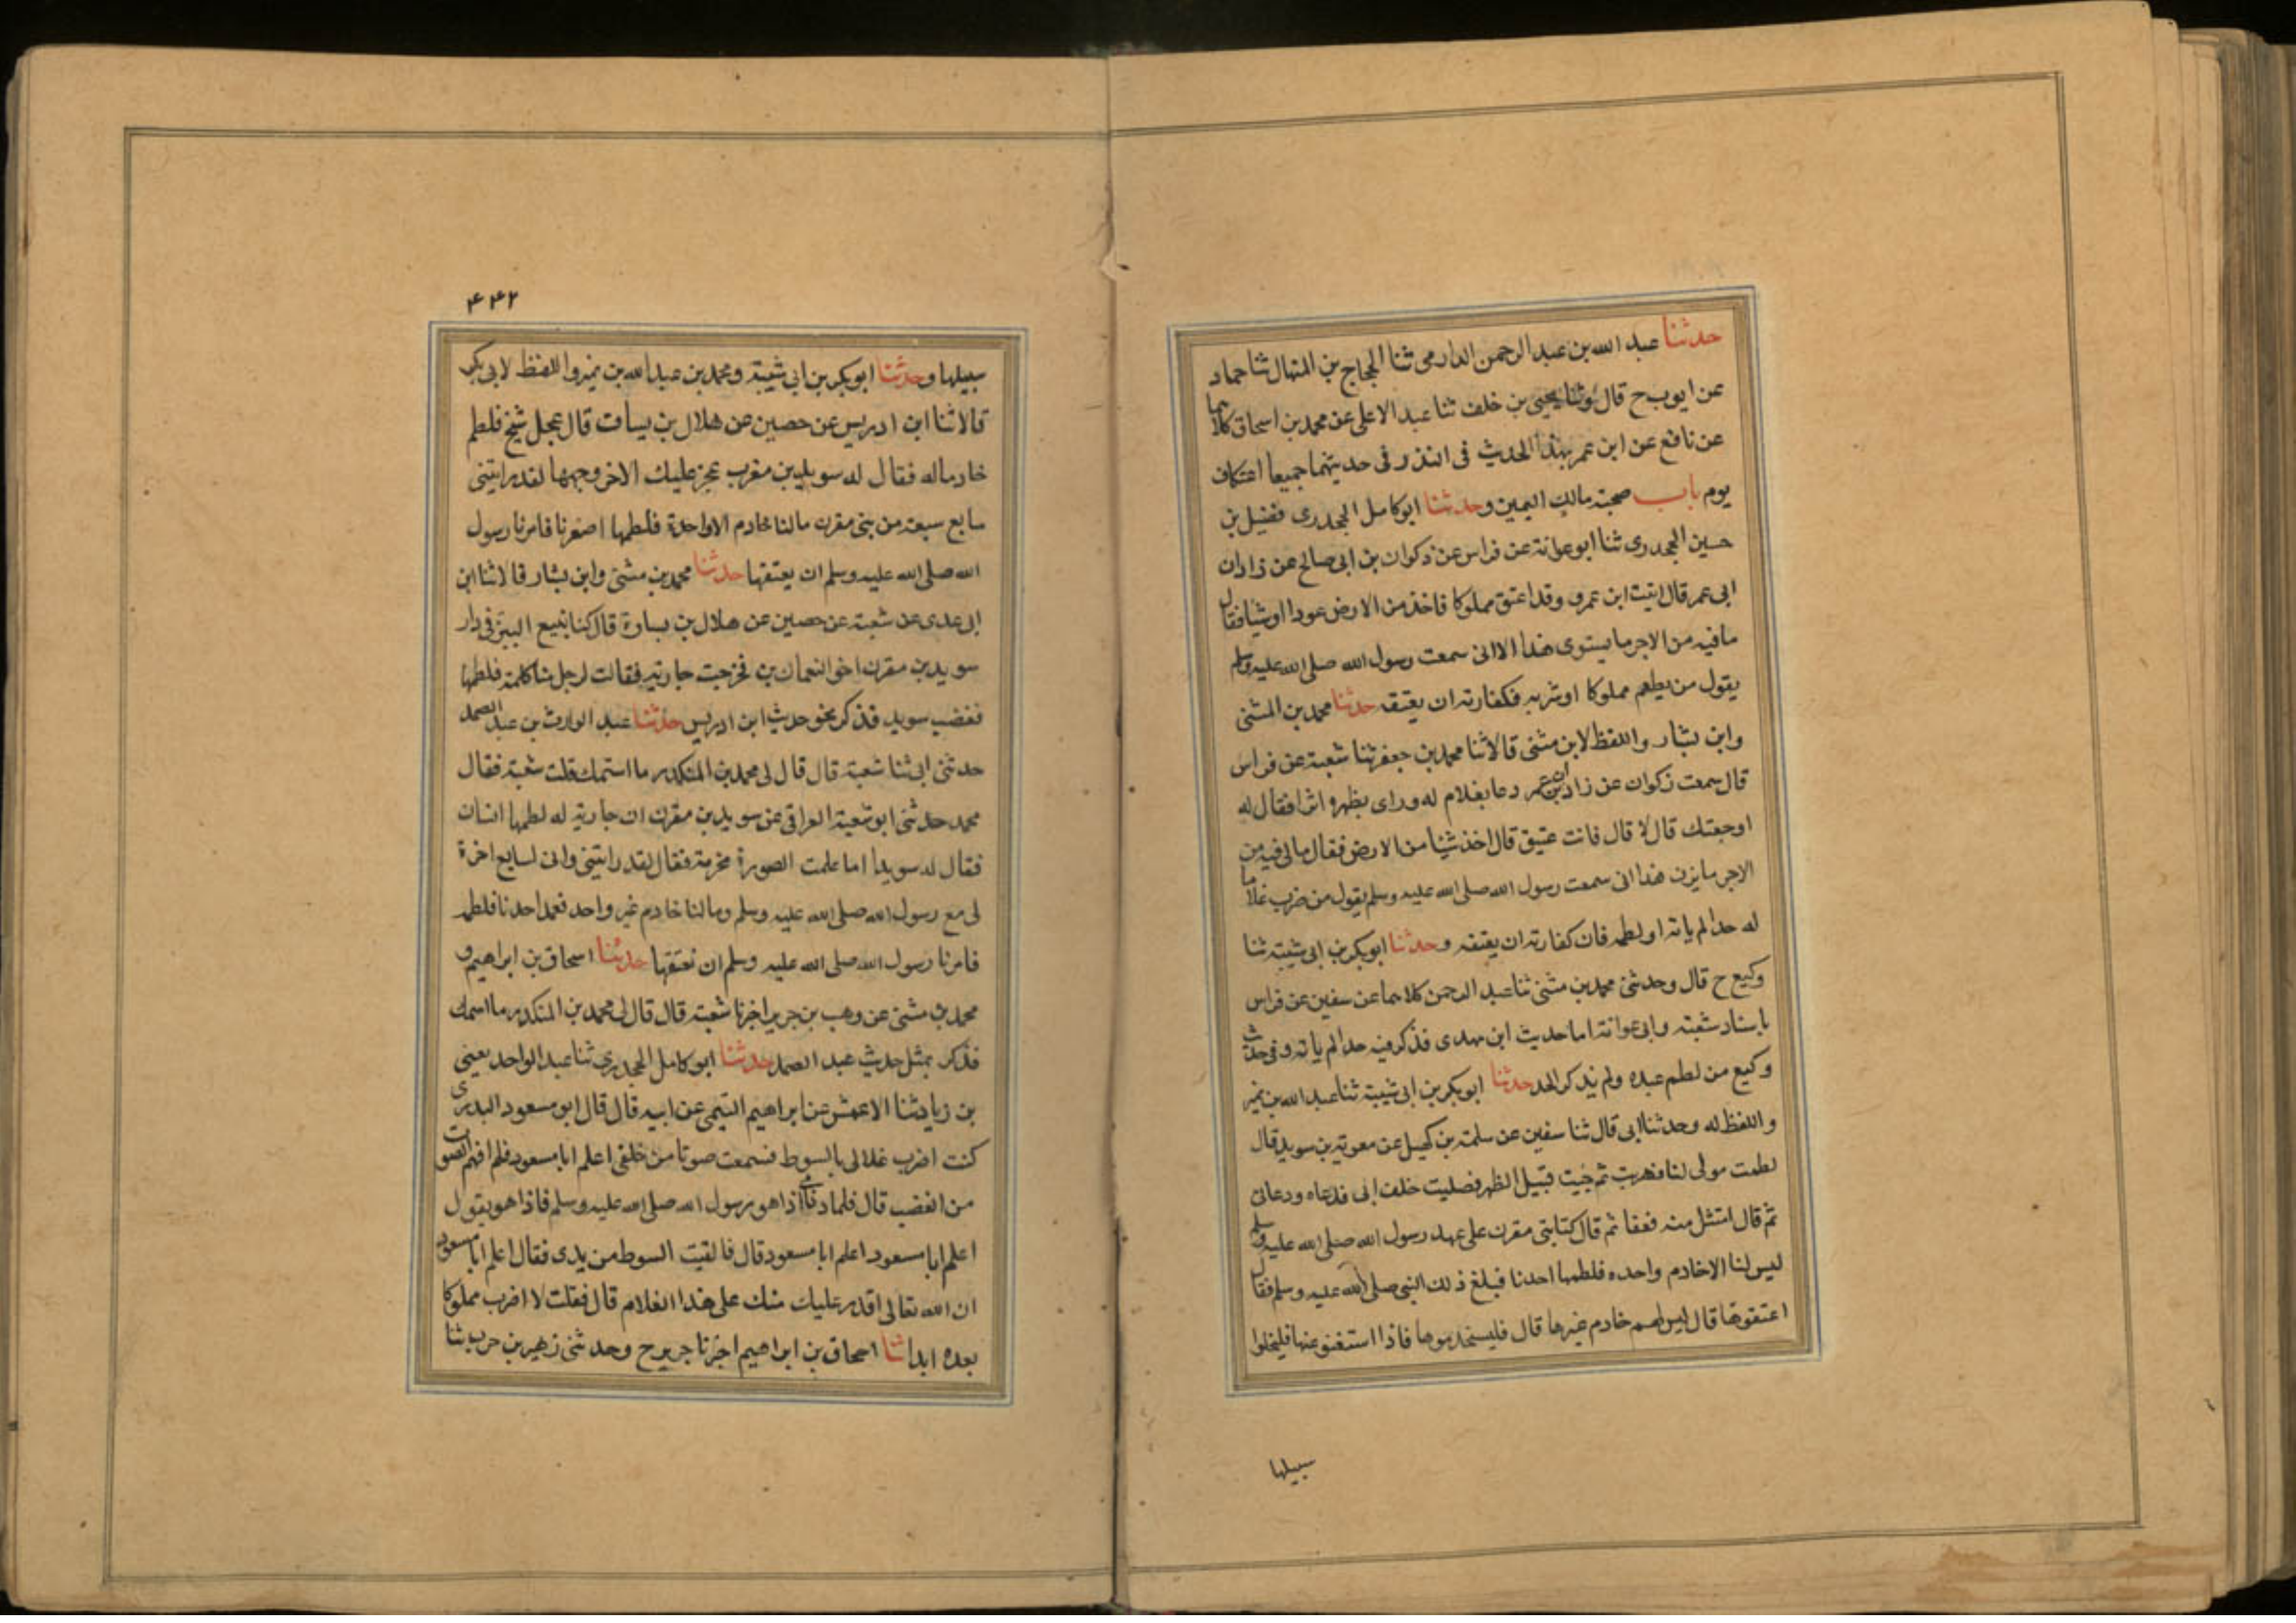 حدثنا عبد الله بن عبد الرحمن الدارمى ثنا الحجاج بن المنهال ثنا حماد
عن ايوب ح قال وثنا يحيى بن خلف ثنا عبد الاعلى عن محمد بن اسحاق كلاهما
عن نافع عن ابن عمر بهذا الحديث فى النذر فى حديثهما جميعا اعتكاف
يوم باب صحبة مالك اليمين وحدثنا ابو كامل الجحدرى فضيل بن
حسين الجحدرى ثنا ابو عوانة عن فراس عن ذكوان بن ابى صالح عن زادان
ابى عمر قال اتيت ابن عمر وقد اعتق مملوكا فاخذ من الارض عودا او شيا فقال
ما فيه من الاجر ما يستوى هذا الا انى سمعت رسول الله صلى الله عليه وسلم
يقول من يطعم مملوكا او شربه فكفارته ان يعتقه حدثنا محمد بن المثنى
وابن بشار واللفظ لابن مثنى قالا ثنا محمد بن جعفر ثنا شعبة عن فراس
قال سمعت زكوان عن زادان ابن عمر دعا بغلام له وراى بظهره اثرا فقال له
اوجعتك قال لا قال فانت عتيق قال اخذ شيئا من الارض فقال مالى فيه من
الاجر ما يزن هذا انى سمعت رسول الله صلى الله عليه وسلم يقول من ضرب غلاما
له حدا لم ياته او لطمه فان كفارته ان يعتقه وحدثنا ابو بكر بن ابى شيبة ثنا
وكيع ح قال وحدثنى محمد بن مثنى ثنا عبد الرحمن كلاهما عن سفين عن فراس
باسناد شعبة وابى عوانة اما حديث ابن مهدى فذكر فيه حدا لم ياته وفى حديث
وكيع من لطم عبده ولم يذكر الحد حدثنا ابو بكر بن ابى شيبة ثنا عبد الله بن نمير
واللفظ له وحدثنا ابى قال ثنا سفين عن سلمة بن كهيل عن معوية بن سويد قال
لطمت مولى لنا فهربت ثم جيت قبيل الظهر فصليت خلف ابى فدعاه ودعانى
ثم قال امتثل منه فعفا ثم قال كنا بنى مقرن على عهد رسول الله صلى الله عليه وسلم
ليس لنا الا خادم واحده فلطمها احدنا فبلغ ذلك النبى صلى الله عليه وسلم فقال
اعتقوها قال ليس لهم خادم غيرها قال فليستخدموها فاذا استغنو عنها فليخلوا
سبيلها
۴۴۲
سبيلها وحدثنا ابو بكر بن ابى شيبة ومحمد بن عبد الله بن نمير واللفظ لابى بكر
قالا ثنا ابن ادريس عن حصين عن هلال بن يساف قال عجل شيخ فلطم
خادما له فقال له سويد بن مقرن عجز عليك الا خر وجهها لقد رايتنى
سابع سبعة من بنى مقرن مالنا خادم الا واحدة فلطمها اصغرنا فامرنا رسول
الله صلى الله عليه وسلم ان يعتقها حدثنا محمد بن مثنى وابن بشار قالا ثنا ابن
ابى عدى عن شعبة عن حصين عن هلال بن يسارة قال كنا نبيع البز فى دار
سويد بن مقرن اخو النعمان بن فخرجت جارية فقالت لرجل منا كلمة فلطمها
فغضب سويد فذكر نحو حديث ابن ادريس حدثنا عبد الوارث بن عبد الصمد
حدثنى ابى ثنا شعبة قال قال لى محمد بن المنكدر ما استمك قلت شعبة فقال
محمد حدثنى ابو شعبة العراقى عن سويد بن مقرن ان جارية له لطمها انسان
فقال له سويدا اما علمت الصورة محرمة فقال لقد رايتنى وانى لسابع اخرة
لى مع رسول الله صلى الله عليه وسلم وما لنا خادم غير واحد فعمد احدنا فلطمه
فامرنا رسول الله صلى الله عليه وسلم ان نعتقها حدثنا اسحاق بن ابراهيم و
محمد بن مثنى عن وهب بن جرير اخبرنا شعبة قال قال لى محمد بن المنكدر ما اسمك
فذكر بمثل حديث عبد الصمد حدثنا ابو كامل الجحدرى ثنا عبد الواحد يعنى
بن زياد ثنا الاعمش عن ابراهيم التيمى عن ابيه قال قال ابو مسعود البدرى
كنت اضرب غلالى بالسوط فسمعت صوتا من خلفى اعلم ابا مسعود فلم افهم الصوت
من الغضب قال فلما دنا منى اذا هو رسول الله صلى الله عليه وسلم فاذا هو يقول
اعلم ابا مسعود اعلم ابا مسعود قال فالقيت السوط من يدى فقال اعلم ابا مسعود
ان الله تعالى اقدر عليك منك على هذا الغلام قال فقلت لا اضرب مملوكا
بعده ابدا ثنا اسحاق بن ابراهيم اخبرنا جرير ح وحدثنى زهير بن حرب ثنا